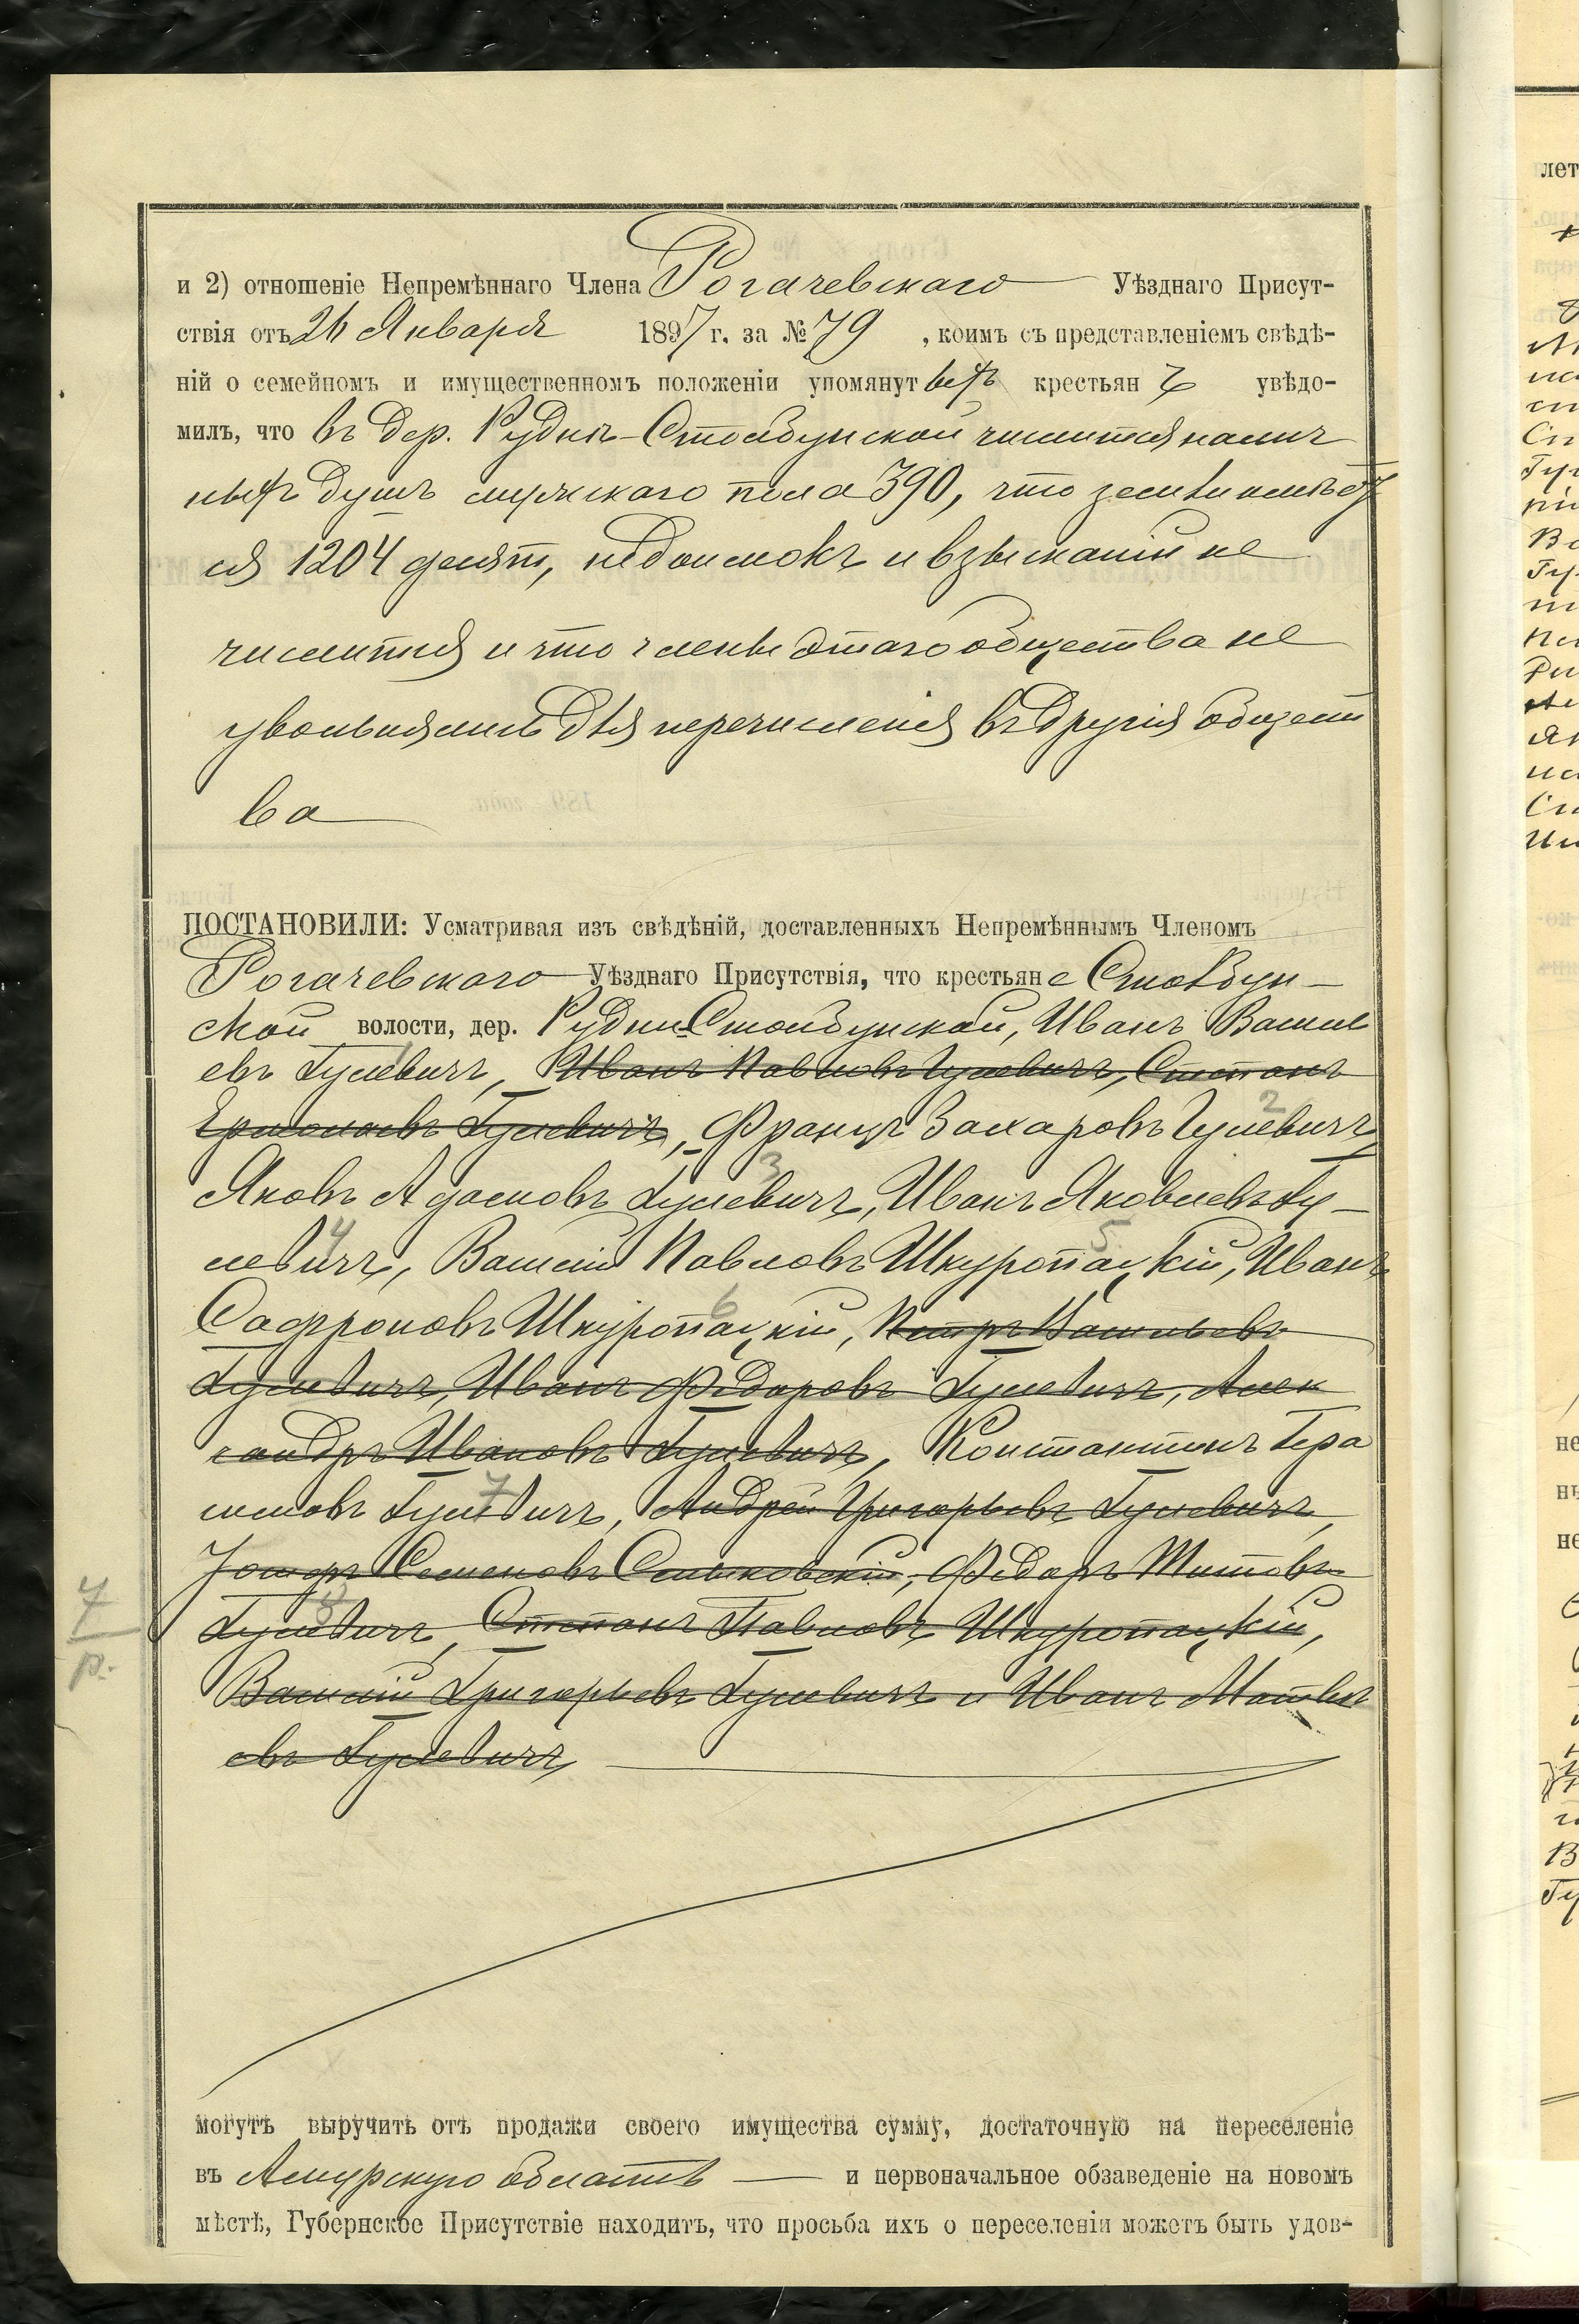 и 2) отношеніе Непремѣннаго Члена Рогачевскаго Уѣзднаго Присут-
ствія отъ 24 Января 1897 г. за № 79 , коимъ съ представленіемъ свѣдѣ-
ній о семейномъ и имущественномъ положеніи упомянутыхъ крестьянъ увѣдо-
милъ, что въ дер. Рудня-Столбунской числится налич
ныхъ душъ мужскаго пола 390, что земли имѣет
ся 1204 десят, недоимокъ и взысканій не
числится и что члены этаго общества не
увольнялись для перечисленія въ другія общест
ва
ПОСТАНОВИЛИ: Усматривая изъ свѣдѣній, доставленныхъ Непремѣннымъ Членомъ
Рогачевскаго Уѣзднаго Присутствія, что крестьяне Столбун-
ской волости, дер. Рудни-Столбунской, Иванъ Василь
евъ Гулевичъ, Иванъ Павловъ Гулевичъ, Степанъ
1
Ермолаевъ Гулевичъ, Францъ Захаровъ Гулевичъ,
2
Яковъ Адамовъ Гулевичъ, Иванъ Яковлевъ Гу-
3
левичъ, Василій Павловъ Шкуропацкій, Иванъ
4 5
Сафроновъ Шкуропацкій, Петръ Васильевъ
6
Гулевичъ, Иванъ Федоровъ Гулевичъ, Алек
сандръ Ивановъ Гулевичъ, Константинъ Гера
симовъ Гулевичъ, Андрей Григорьевъ Гулевичъ,
7
Іосифъ Семеновъ Сельковскій, Федоръ Титовъ
Гулевичъ, Степанъ Павловъ Шкуропацкій,
8
7
р.
Василій Григорьевъ Гулевичъ и Иванъ Матвѣ
евъ Гулевичъ,
могутъ выручить отъ продажи своего имущества сумму, достаточную на переселеніе
въ Амурскую область и первоначальное обзаведеніе на новомъ
мѣстѣ, Губернское Присутствіе находитъ, что просьба ихъ о переселеніи можетъ быть удов-